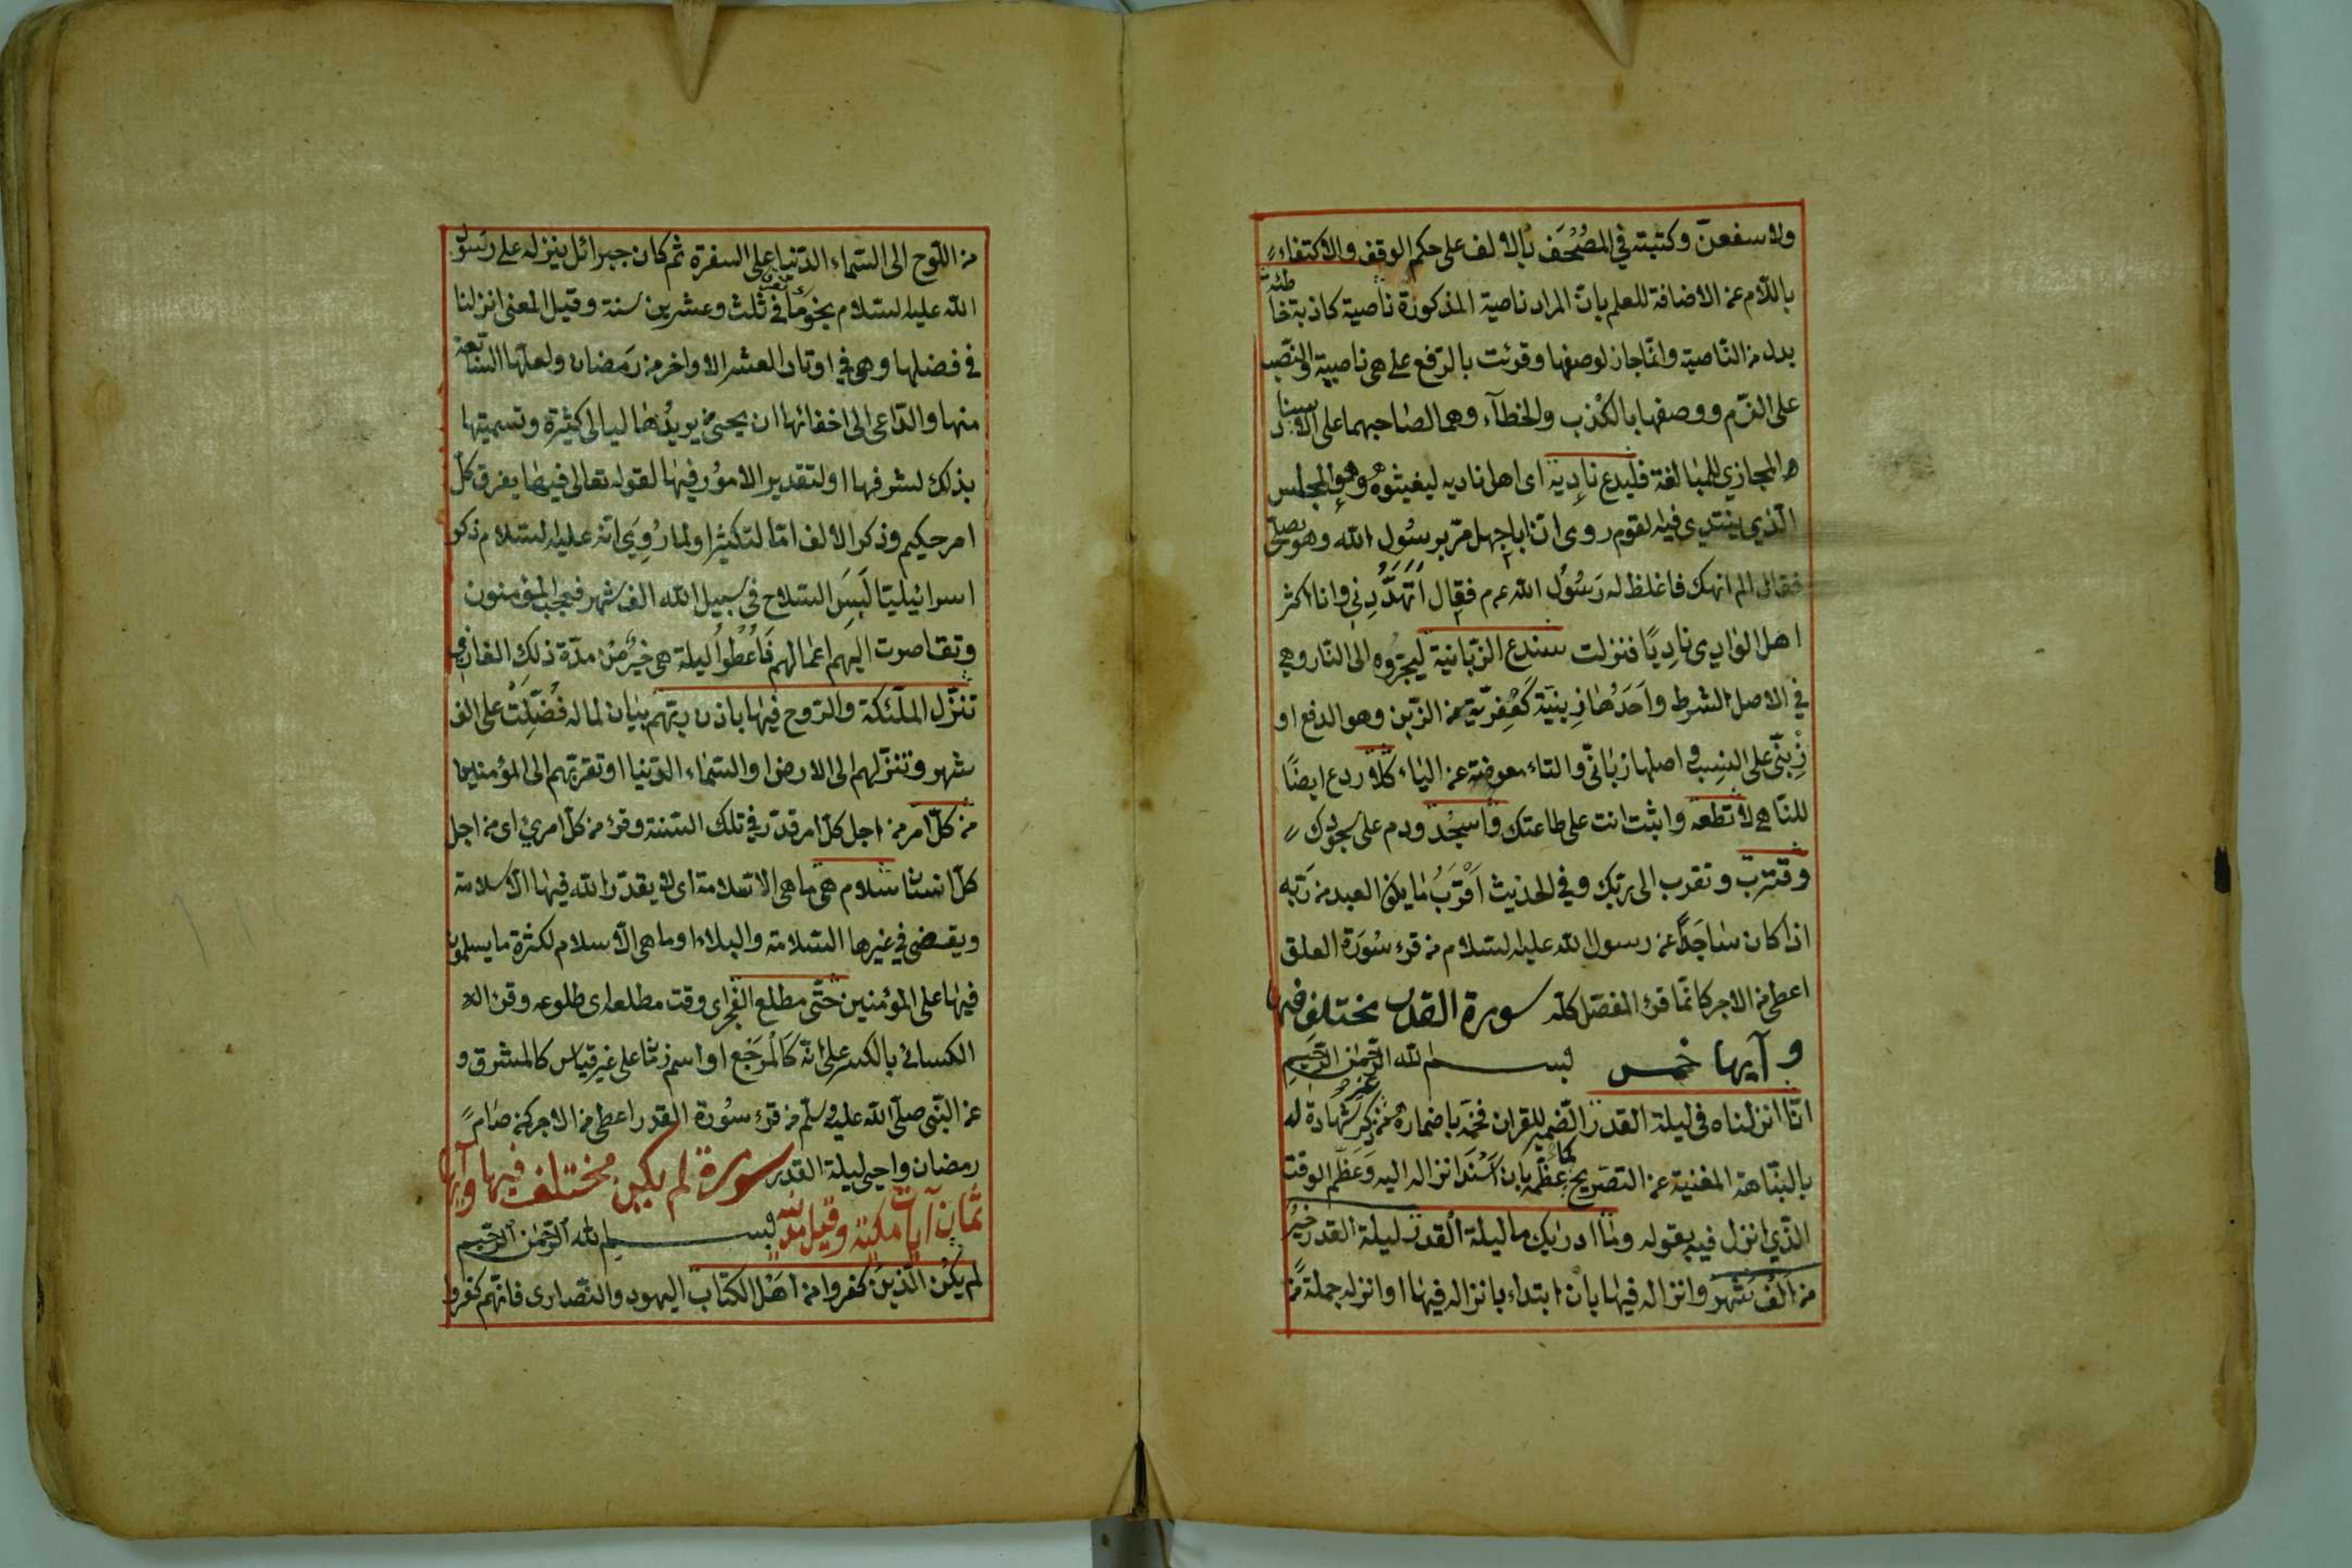 ولاسفعن وكتبته في المصحف بالالف على حكم الوقف والاكتفاء
باللام عن الاضافة للعلم بان المراد ناصية المذكورة ناصية كاذبة خاطئة
بدل من الناصية وانما جاز لوصفها وقرئت بالرفع على هي ناصية والنصب
على الذم ووصفها بالكذب والخطآء وهما لصاحبهما على الاسنا
د المجازي للمبالغة فليدع ناديه اى اهل ناديه ليغيثوه وهو المجلس
الذي ينتدي فيه القوم روى ان اباجهل مر برسول الله وهو يصلي
فقال الم انهك فاغلظ له رسول الله عم فقال اتهددني وانا اكثر
اهل الوادى ناديا فنزلت سندع الزبانية ليجروه الى النار وهي
في الاصل الشرط واحدها زبنية كعفرية من الزبن وهو الدفع او
زبنى على النسب واصلها زبانى والتاء معوضة عن الياء كلا ردع ايضا
للناهي لا تطعه واثبت انت على طاعتك واسجد ودم على سجودك
وقترب وتقرب الى ربك وفي الحديث اقرب ما يكون العبد من ربه
اذا كان ساجدا عن رسول الله عليه السلام من قرء سورة العلق
اعطى من الاجر كانما قرء المفصل كله سورة القدر مختلف فيها
وآيها خمس بسم الله الرحمن الرحيم
انا انزلناه في ليلة القدر الضمير للقران فخمه باضماره من غير ذكر شهادة له
بالنباهة المغنية عن التصريح كما عظمه بان اسند انزاله اليه وعظم الوقت
الذي انزل فيه بقوله وما ادريك ما ليلة القدر ليلة القدر خير
من الف شهر وانزاله فيها بان ابتداء بانزاله فيها او انزله جملة من
من اللوح الى السماء الدنيا على السفرة ثم كان جبرائل ينزله على رسول
الله عليه السلام نجوما في ثلث وعشرين سنة وقيل المعنى انزلنا
في فضلها وهي في اوتار العشر الاواخر من رمضان ولعلها السابعة
منها والداعي الى اخفائها ان يحيى من يريدها ليالي كثيرة وتسميتها
بذلك لشرفها او لتقدير الامور فيها لقوله تعالى فيها يفرق كل
امر حكيم وذكر الالف اما لتكثير او لما روي انه عليه السلام ذكر
اسرائيليا لبس السلاح في سبيل الله الف شهر فعجب المؤمنون
وتقاصرت اليهم اعمالهم فاعطوا ليلة هي خير من مدة ذلك الغازي
تنزل الملئكة والروح فيها باذن ربهم بيان لما له فضلت على الف
شهر وتنزلهم الى الارض او السماء الدنيا او تقربهم الى المؤمنين
من كل امر من اجل كل امر قدر في تلك السنة وقرء من كل امرئ اى من اجل
كل انسان سلام هي ما هي الا سلامة اى لا يقدر الله فيها الا السلامة
ويقضى في غيرها السلامة والبلاء او ما هي الا سلام لكثرة ما يسلمون
فيها على المؤمنين حتى مطلع الفجر اى وقت مطلعه اى طلوعه وقرء
الكسائي بالكسر على انه كالمرجع او اسم زمان على غير قياس كالمشرق و
عن النبي صلى الله عليه وسلم من قرء سورة القدر اعطى من الاجر كمن صام
رمضان واحيى ليلة القدر سورة لم يكن مختلف فيها وآيها
ثمان آيات مكية وقيل مدنية بسم الله الرحمن الرحيم
لم يكن الذين كفروا من اهل الكتاب اليهود والنصارى فانهم كفروا